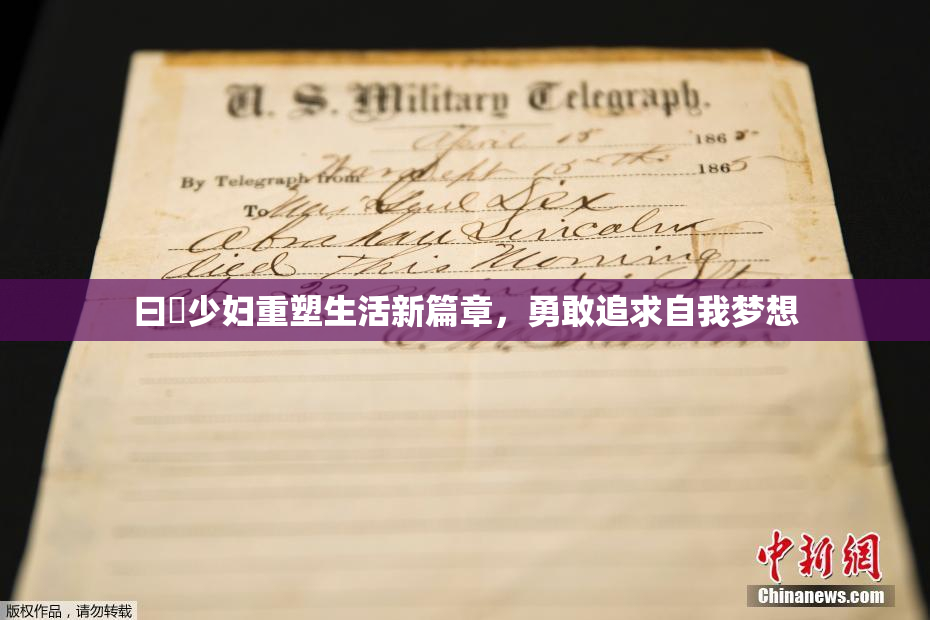 U. S. Military Telegraph.
April 15 1865
By Telegraph from War Dept 15th 1865
To Maj Genl Dix
Abraham Lincoln
died This Morning
曰 少妇重塑生活新篇章，勇敢追求自我梦想
中新网
Chinanews.com
版权作品，请勿转载